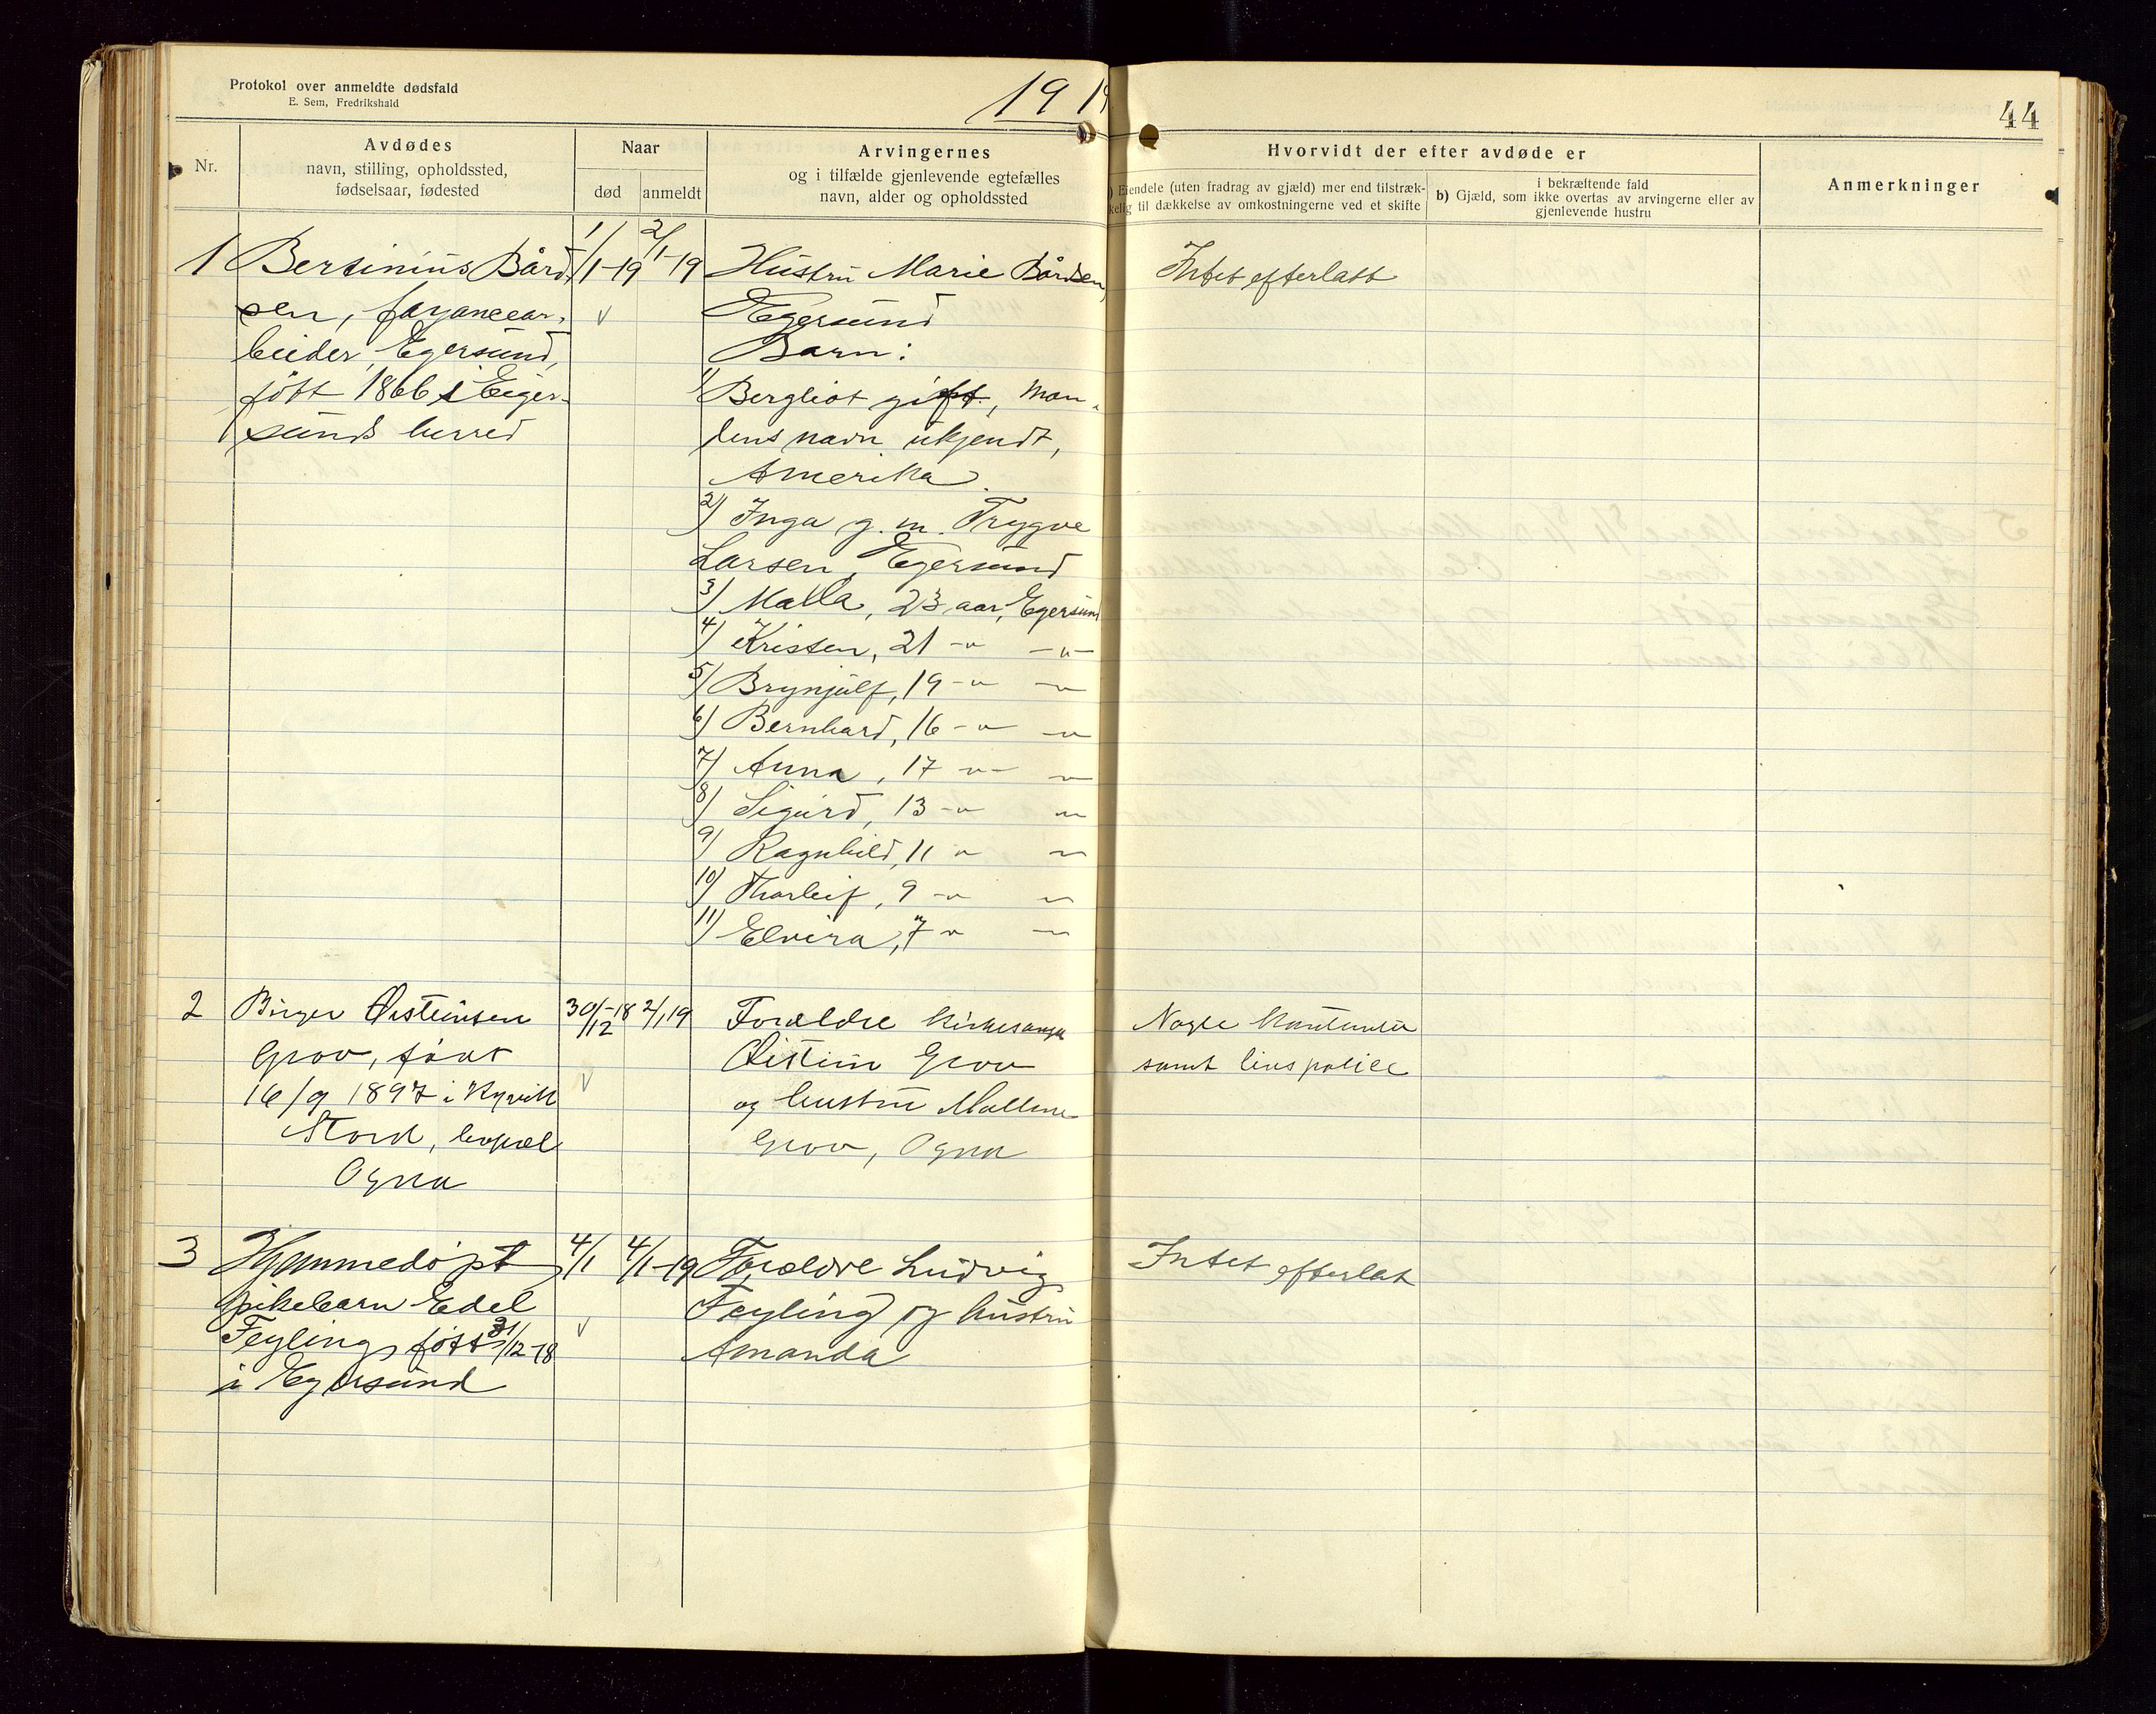 Protokol over anmeldte dødsfald
E. Sem, Fredrikshald
1919
44
Nr.
Avdødes
navn, stilling, opholdssted,
fødselsaar, fødested
Naar
død
anmeldt
Arvingernes
og i tilfælde gjenlevende egtefælles
navn, alder og opholdssted
Hvorvidt der efter avdøde er
Eiendele (uten fradrag av gjæld) mer end tilstræk-
kelig til dækkelse av omkostningerne ved et skifte
i bekræftende fald
b) Gjæld, som ikke overtas av arvingerne eller av
gjenlevende hustru
Anmerkninger
1
Bertinius Bård-
sen, fayancear-
beider, Egersund,
født 1866 i Eiger-
sunds herred
1/1-19
2/1-19
Hustru Marie Bårdsen,
Egersund
Barn:
1) Bergliot gift, Man-
dens navn ukjendt,
Amerika.
2) Inga g. m. Trygve
Larsen, Egersund
3) Malla, 23 aar, Egersund
4) Kristen, 21 -"- -"-
5) Brynjulf, 19 -"- -"-
6) Bernhard, 16 -"- -"-
7) Anna, 17 -"- -"-
8) Sigurd, 13 -"- -"-
9) Ragnhild, 11 " -"-
10) Thorleif, 9 -"- -"-
11) Elvira, 7 " -"-
Intet efterlatt
2
Birger Østeinsen
Grov, født
16/9 1897 i
Stord, bopæl
Ogna
30/12-18
2/1 19
Forældre Kirkesanger
Østein Grov
og hustru
Grov, Ogna
Nogle kontanter
samt livspolice
3
Hjemmedøpt
pikebarn Edel
Feyling, født 31/12-18
i Egersund
4/1
4/1-19
Forældre Ludvig
Feyling og hustru
Amanda
Intet efterlat